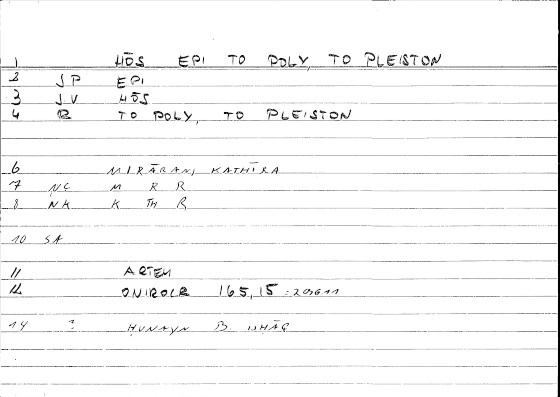 1 HŌS EPI TO POLY, TO PLEISTON
2 JP EPI
3 JV HŌS
4 R TO POLY, TO PLEISTON
6 MIRĀRAN, KATHĪRA
7 NC M R R
8 NK K TH R
10 SA
11 ARTEM
12 ONIROCR 165,15 =
14 ? ḤUNAYN B. ISḤĀQ